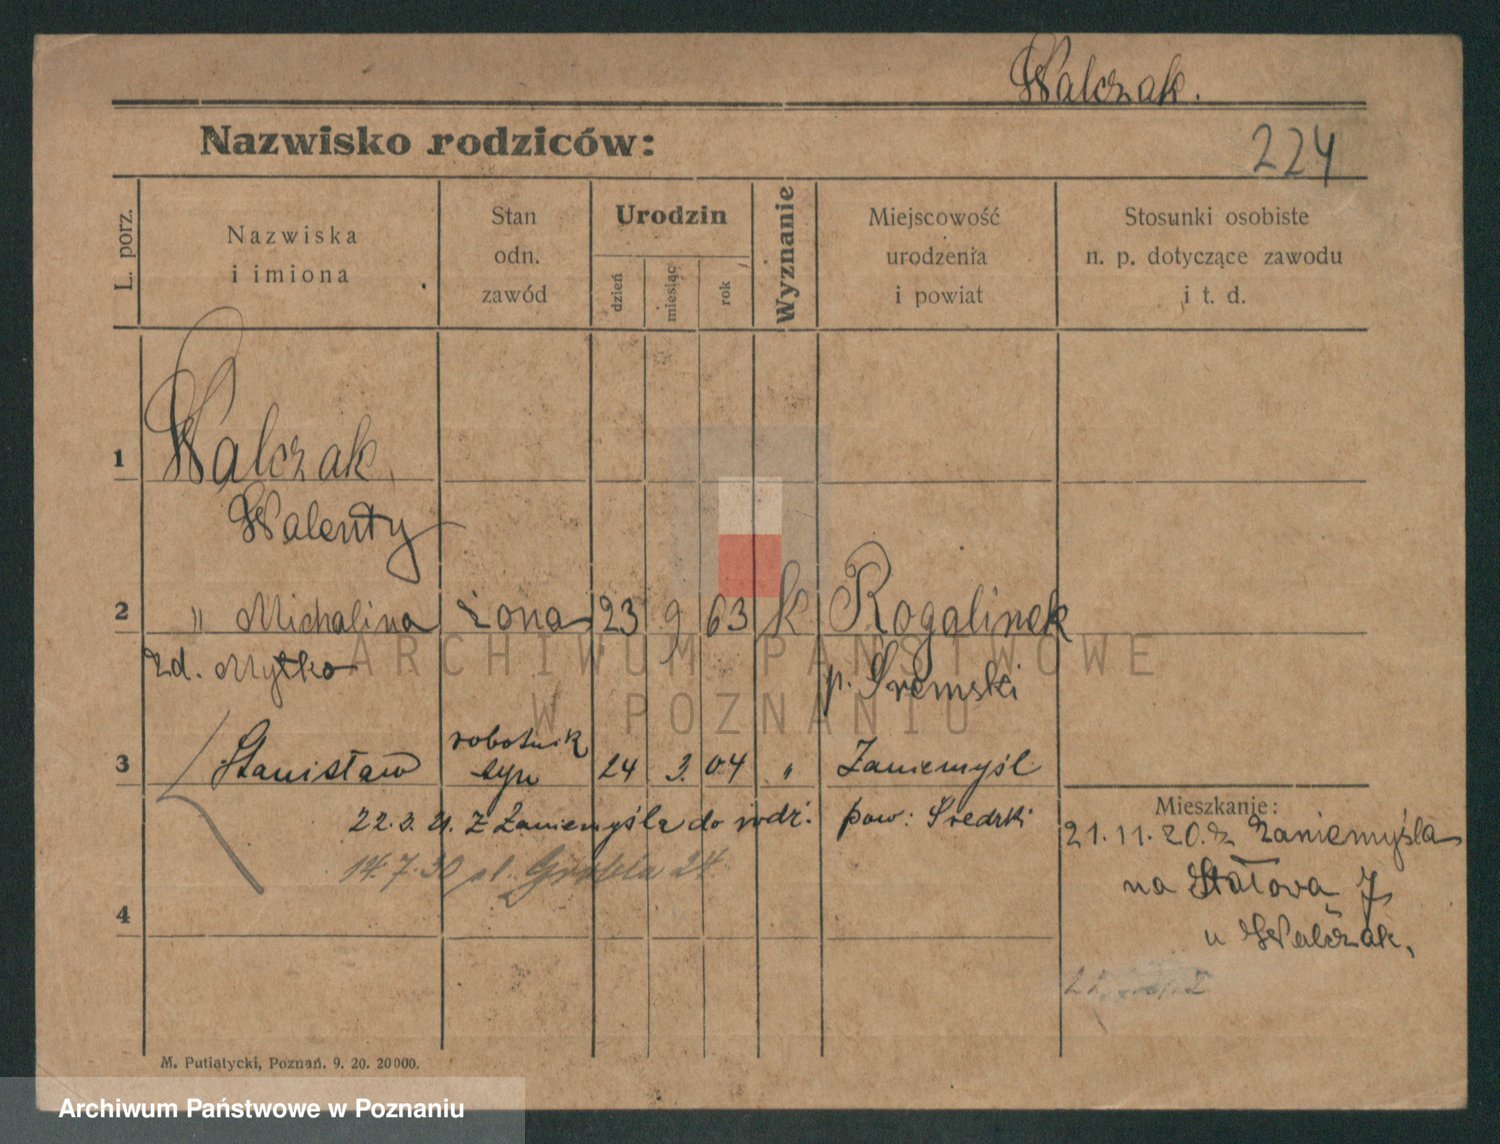 Walczak.
Nazwisko rodziców:
224
L. porz.
Nazwiska
i imiona
Stan
odn.
zawód
Urodzin
dzień
miesiąc
rok
Wyznanie
Miejscowość
urodzenia
i powiat
Stosunki osobiste
n. p. dotyczące zawodu
i t. d.
1 Walczak
Walenty
2 " Michalina żona 23 9 63 k Rogalinek
zd. Mytko p. Śremski
3 Stanisław robotnik syn 24 3. 04 " Zaniemyśl
22.3.21. z Zaniemyśla do rodz. pow: Średzki
14.7.30 Grobla 24
4
Mieszkanie:
21.11.20. z Zaniemyśla
na Stałowa 7
u Walczak.
M. Putiatycki, Poznań. 9. 20. 20000.
ARCHIWUM PAŃSTWOWE
W POZNANIU
Archiwum Państwowe w Poznaniu